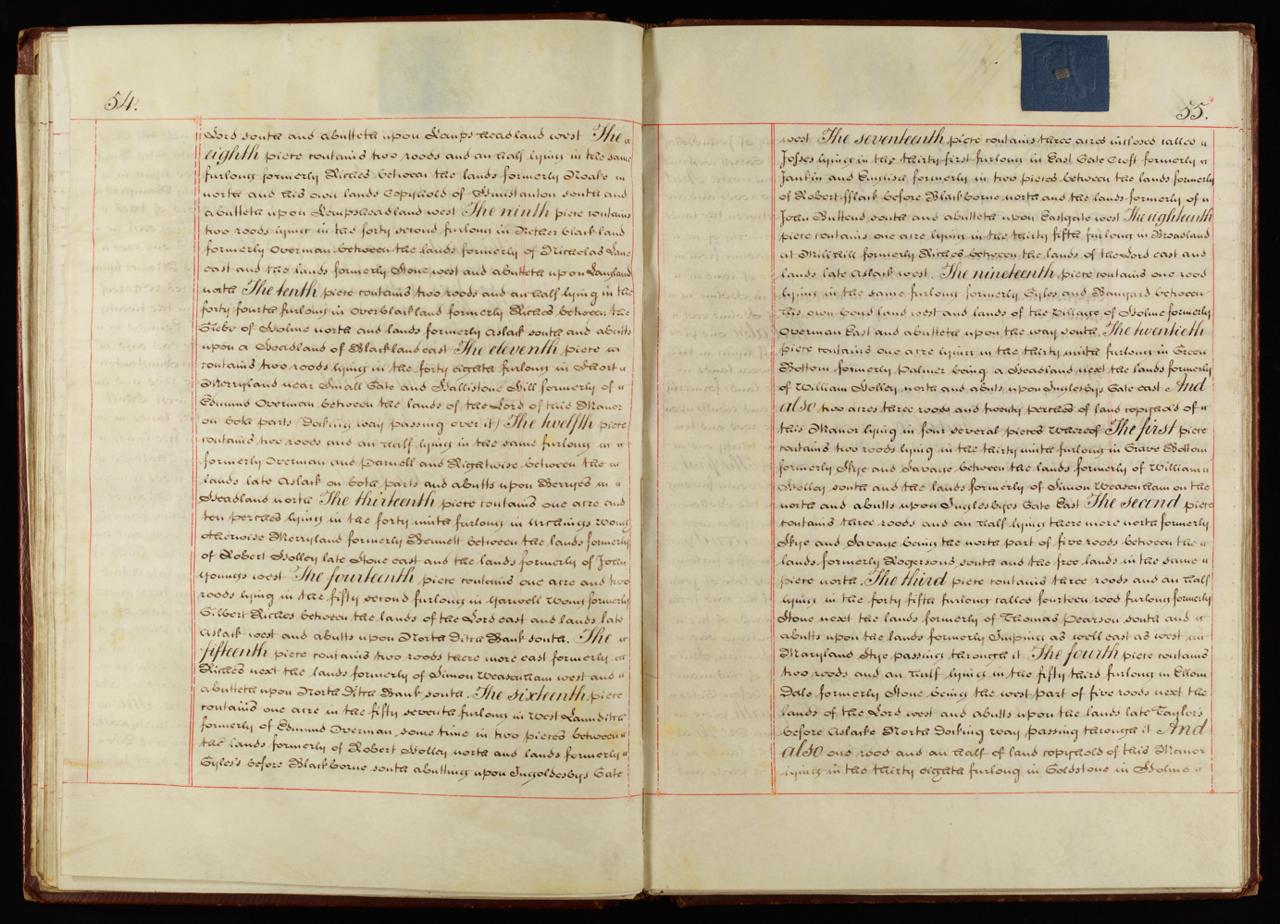 54.
Lord south and abutteth upon Lamps headland west The
eighth piece contains two roods and an half lying in the same
furlong formerly Riches between the lands formerly Noake in
north and his own lands Copyhold of Hunstanton south and
abutteth upon Lampsheadland west The ninth piece contains
two roods lying in the forty second furlong in Nether black land
formerly Overman between the lands formerly of Nicholas Lane
east and the lands formerly Stone west and abutteth upon Langland
north The tenth piece contains two roods and an half lying in the
forty fourth furlong in Overblackland formerly Riches between the
Glebe of Holme north and lands formerly Aslack south and abutts
upon a Headland of Blackland east The eleventh piece
contains two roods lying in the forty eighth furlong in Short
Merryland near Small Gate and Hallistone Hill formerly of
Edmund Overman between the lands of the Lord of this Manor
on both parts Docking way passing over it) The twelfth piece
contains two roods and an half lying in the same furlong
formerly Overman and Parnell and Rightwise between the
lands late Aslack on both parts and abutts upon Berryes
Headland north The thirteenth piece contains one acre and
ten perches lying in the forty ninth furlong in Urchings Wong
otherwise Merryland formerly Bennett between the lands formerly
of Robert Holley late Stone east and the lands formerly of John
Youngs west The fourteenth piece contains one acre and two
roods lying in the fifty second furlong in Yarwell Wong formerly
Gilbert Riches between the lands of the Lord east and lands late
Aslack west and abutts upon North Ditch Bank south. The
fifteenth piece contains two roods there more east formerly
Riches next the lands formerly of Simon Weasenham west and
abutteth upon North Ditch Bank south. The sixteenth piece
contains one acre in the fifty seventh furlong in West Lannditch
formerly of Edmund Overman some time in two pieces between
the lands formerly of Robert Holley north and lands formerly
Gyles's before Blackborne south abutting upon Ingoldesbys Gate
55.
west The seventeenth piece contains three acres inclosed called
Josses lying in the thirty first furlong in East Gate Croft formerly
Jankin and English formerly in two pieces between the lands formerly
of Robert fflack before Blackborne north and the lands formerly of
John Buttend south and abutteth upon Eastgate west The eighteenth
piece contains one acre lying in the thirty fifth furlong in Broadland
at Millhill formerly Riches between the lands of the Lord east and
lands late Aslack west. The nineteenth piece contains one rood
lying in the same furlong formerly Gyles and Banyard between
his own bond land west and lands of the Village of Holme formerly
Overman East and abutteth upon the way south. The twentieth
piece contains one acre lying in the thirty ninth furlong in Green
Bottom formerly Palmer being a Headland next the lands formerly
of William Holley north and abuts upon Inglesbys Gate east And
also two acres three roods and twenty perches of land copyhold of
this Manor lying in four several pieces Whereof The first piece
contains two roods lying in the thirty ninth furlong in Grave Bottom
formerly Skye and Savage between the lands formerly of William
Holley south and the lands formerly of Simon Weasenham on the
north and abutts upon Inglesbyes Gate East The second piece
contains three roods and an half lying there more north formerly
Skye and Savage being the north part of five roods between the
lands formerly Rogersons south and the free lands in the same
piece north. The third piece contains three roods and an half
lying in the forty fifth furlong called fourteen rood furlong formerly
Stone next the lands formerly of Thomas Pearson south and
abutts upon the lands formerly Inpings as well east as west
Maryland Stye passing through it The fourth piece contains
two roods and an half lying in the fifty third furlong in Ellom
Dale formerly Stone being the west part of five roods next the
lands of the Lord west and abutts upon the lands late Taylor's
before Aslacke North Docking way passing through it And
also one rood and an half of land copyhold of this Manor
lying in the thirty eighth furlong in Goldstone in Holme